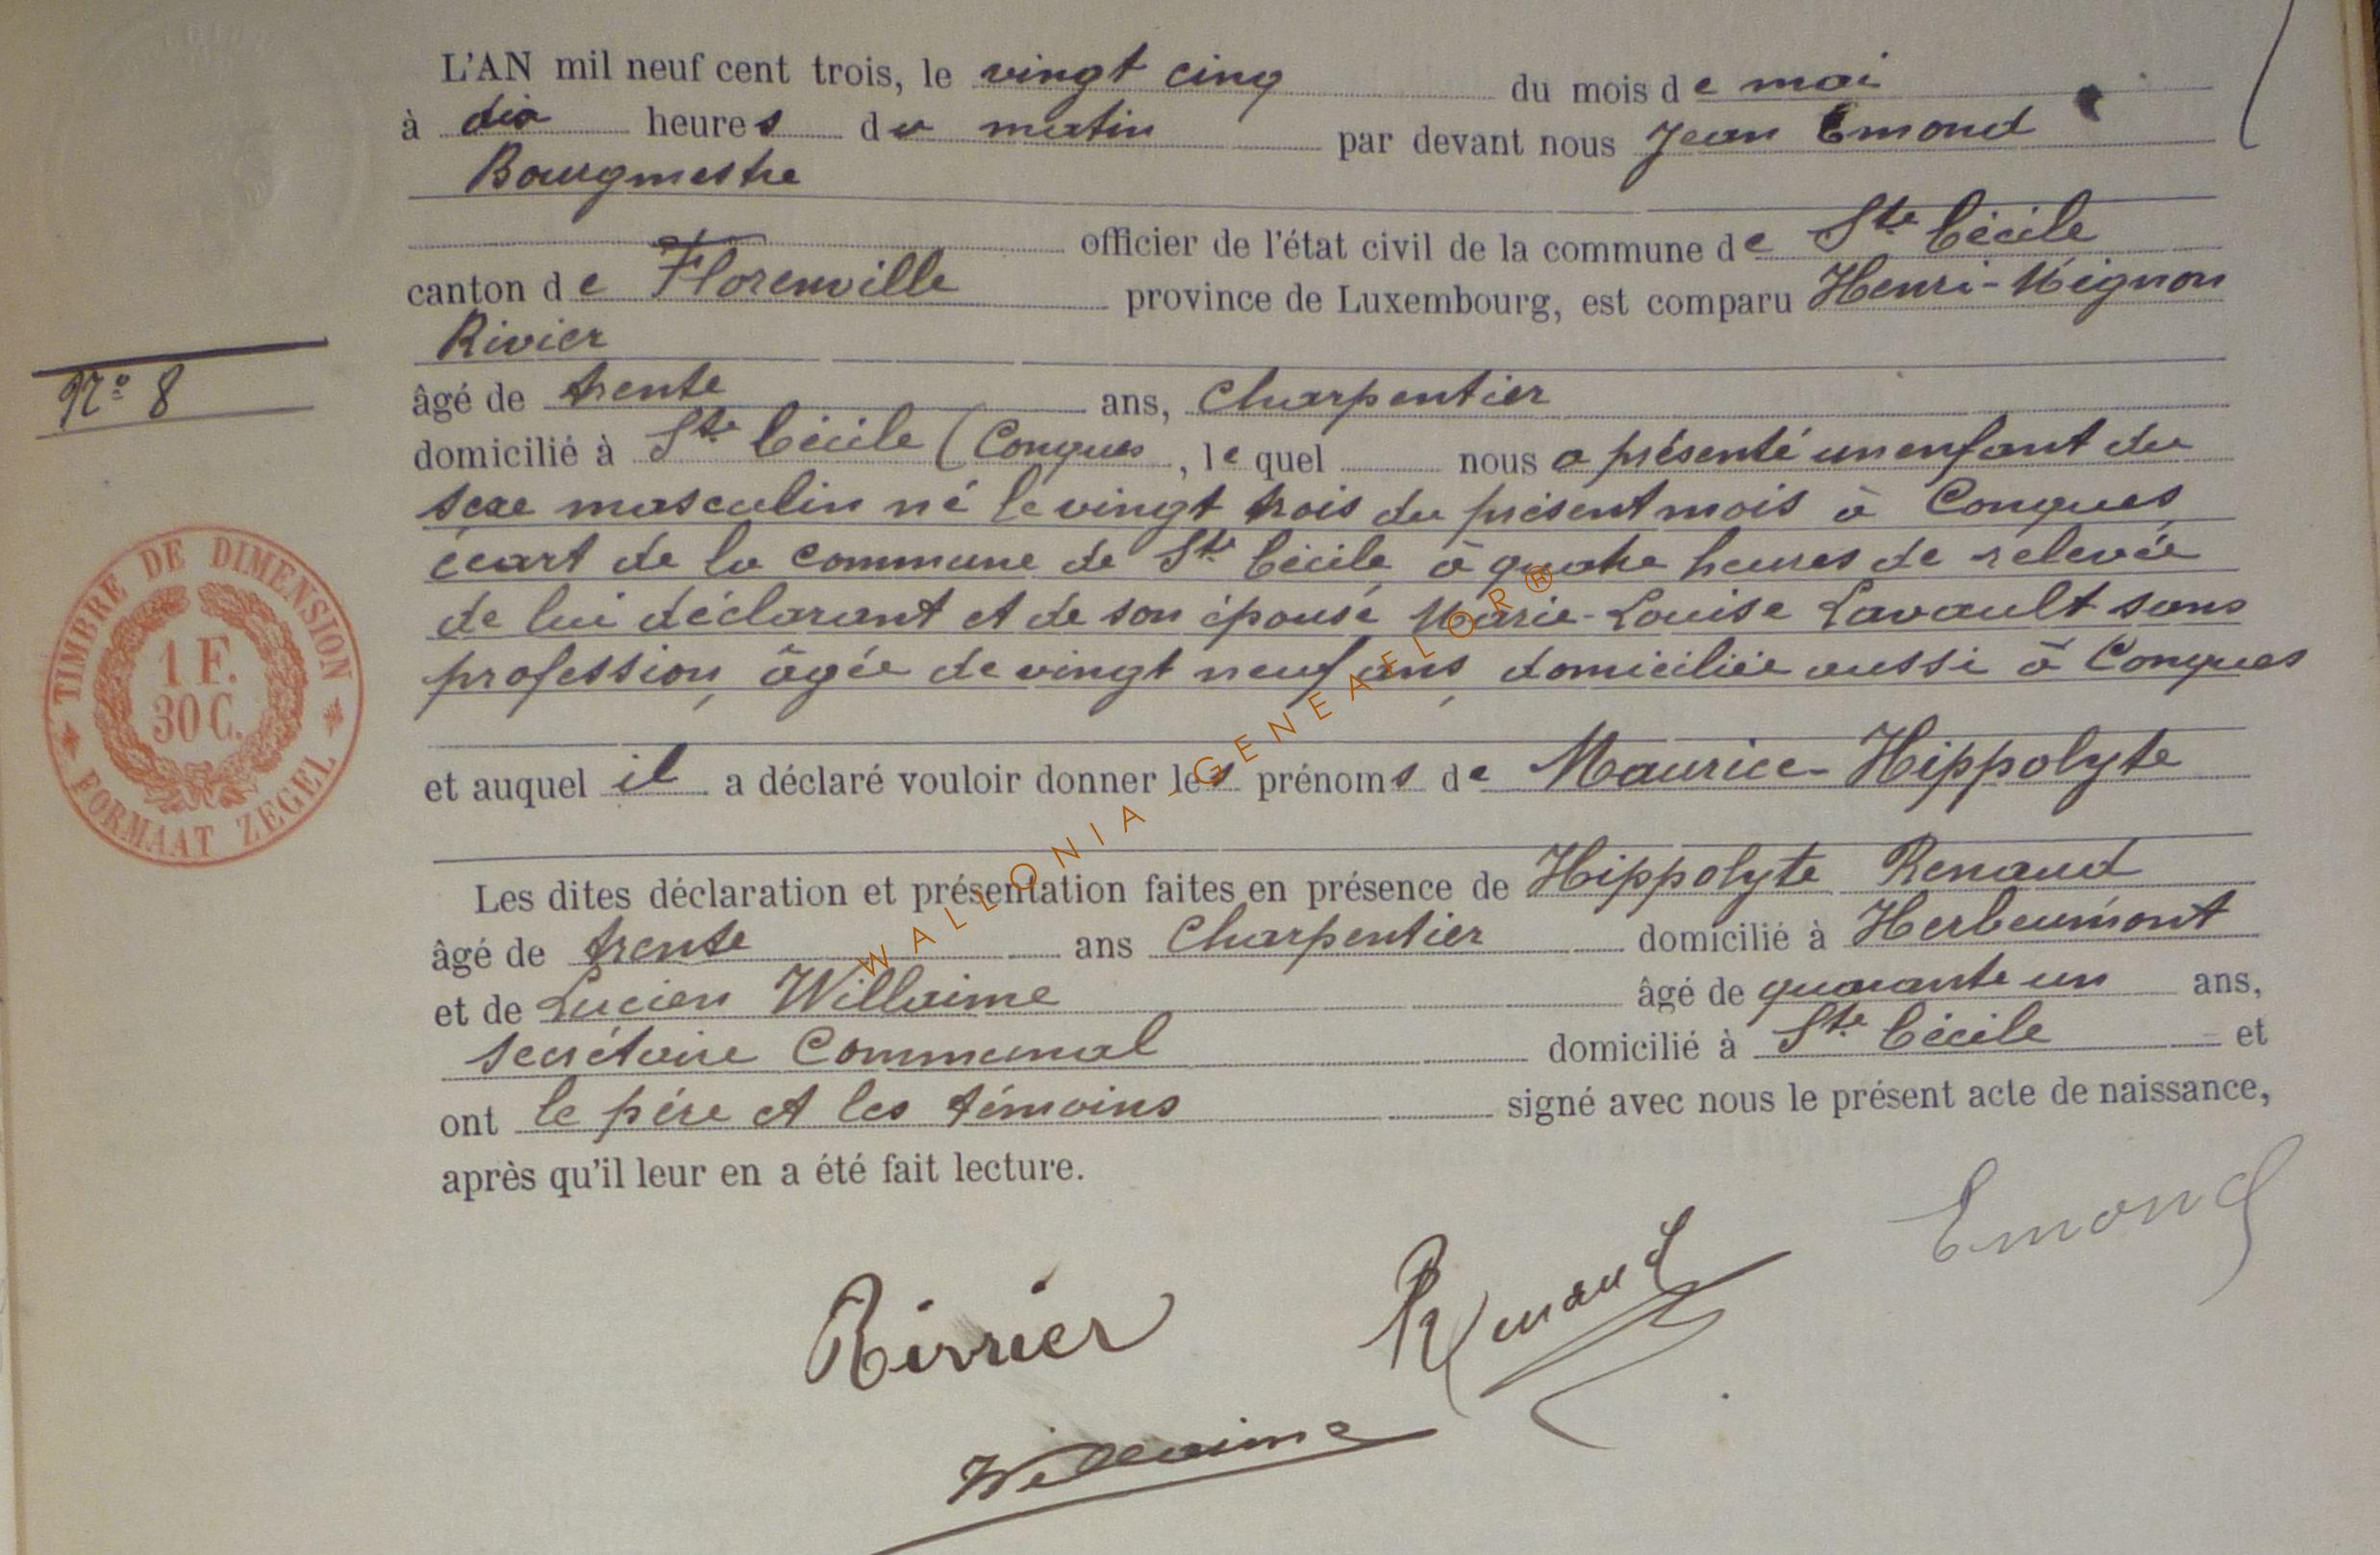 L'AN mil neuf cent trois, le vingt cinq du mois de mai
à dix heures du matin par devant nous Jean Emond
Bourgmestre
officier de l'état civil de la commune de Ste Cécile
canton de Florenville province de Luxembourg, est comparu Henri-Mignon
Rivier
N° 8
âgé de trente ans, Charpentier
domicilié à Ste Cécile (Conques, lequel nous a présenté un enfant du
sexe masculin né le vingt trois du présent mois à Conques
écart de la commune de Ste Cécile, à quatre heures de relevée
de lui déclarant et de son épouse Marie-Louise Lavault sans
profession, âgée de vingt neuf ans, domiciliée aussi à Conques
TIMBRE DE DIMENSION
1 F.
30 C.
FORMAAT ZEGEL
et auquel il a déclaré vouloir donner les prénoms de Maurice-Hippolyte
Les dites déclaration et présentation faites en présence de Hippolyte Renaud
âgé de trente ans Charpentier domicilié à Herbeumont
et de Lucien Willaime âgé de quarante un ans,
secrétaire Communal domicilié à Ste Cécile et
ont le père et les témoins signé avec nous le présent acte de naissance,
après qu'il leur en a été fait lecture.
WALLONIA-GENEAFLOR®
Emond
Rivrier Renaud
Willaime